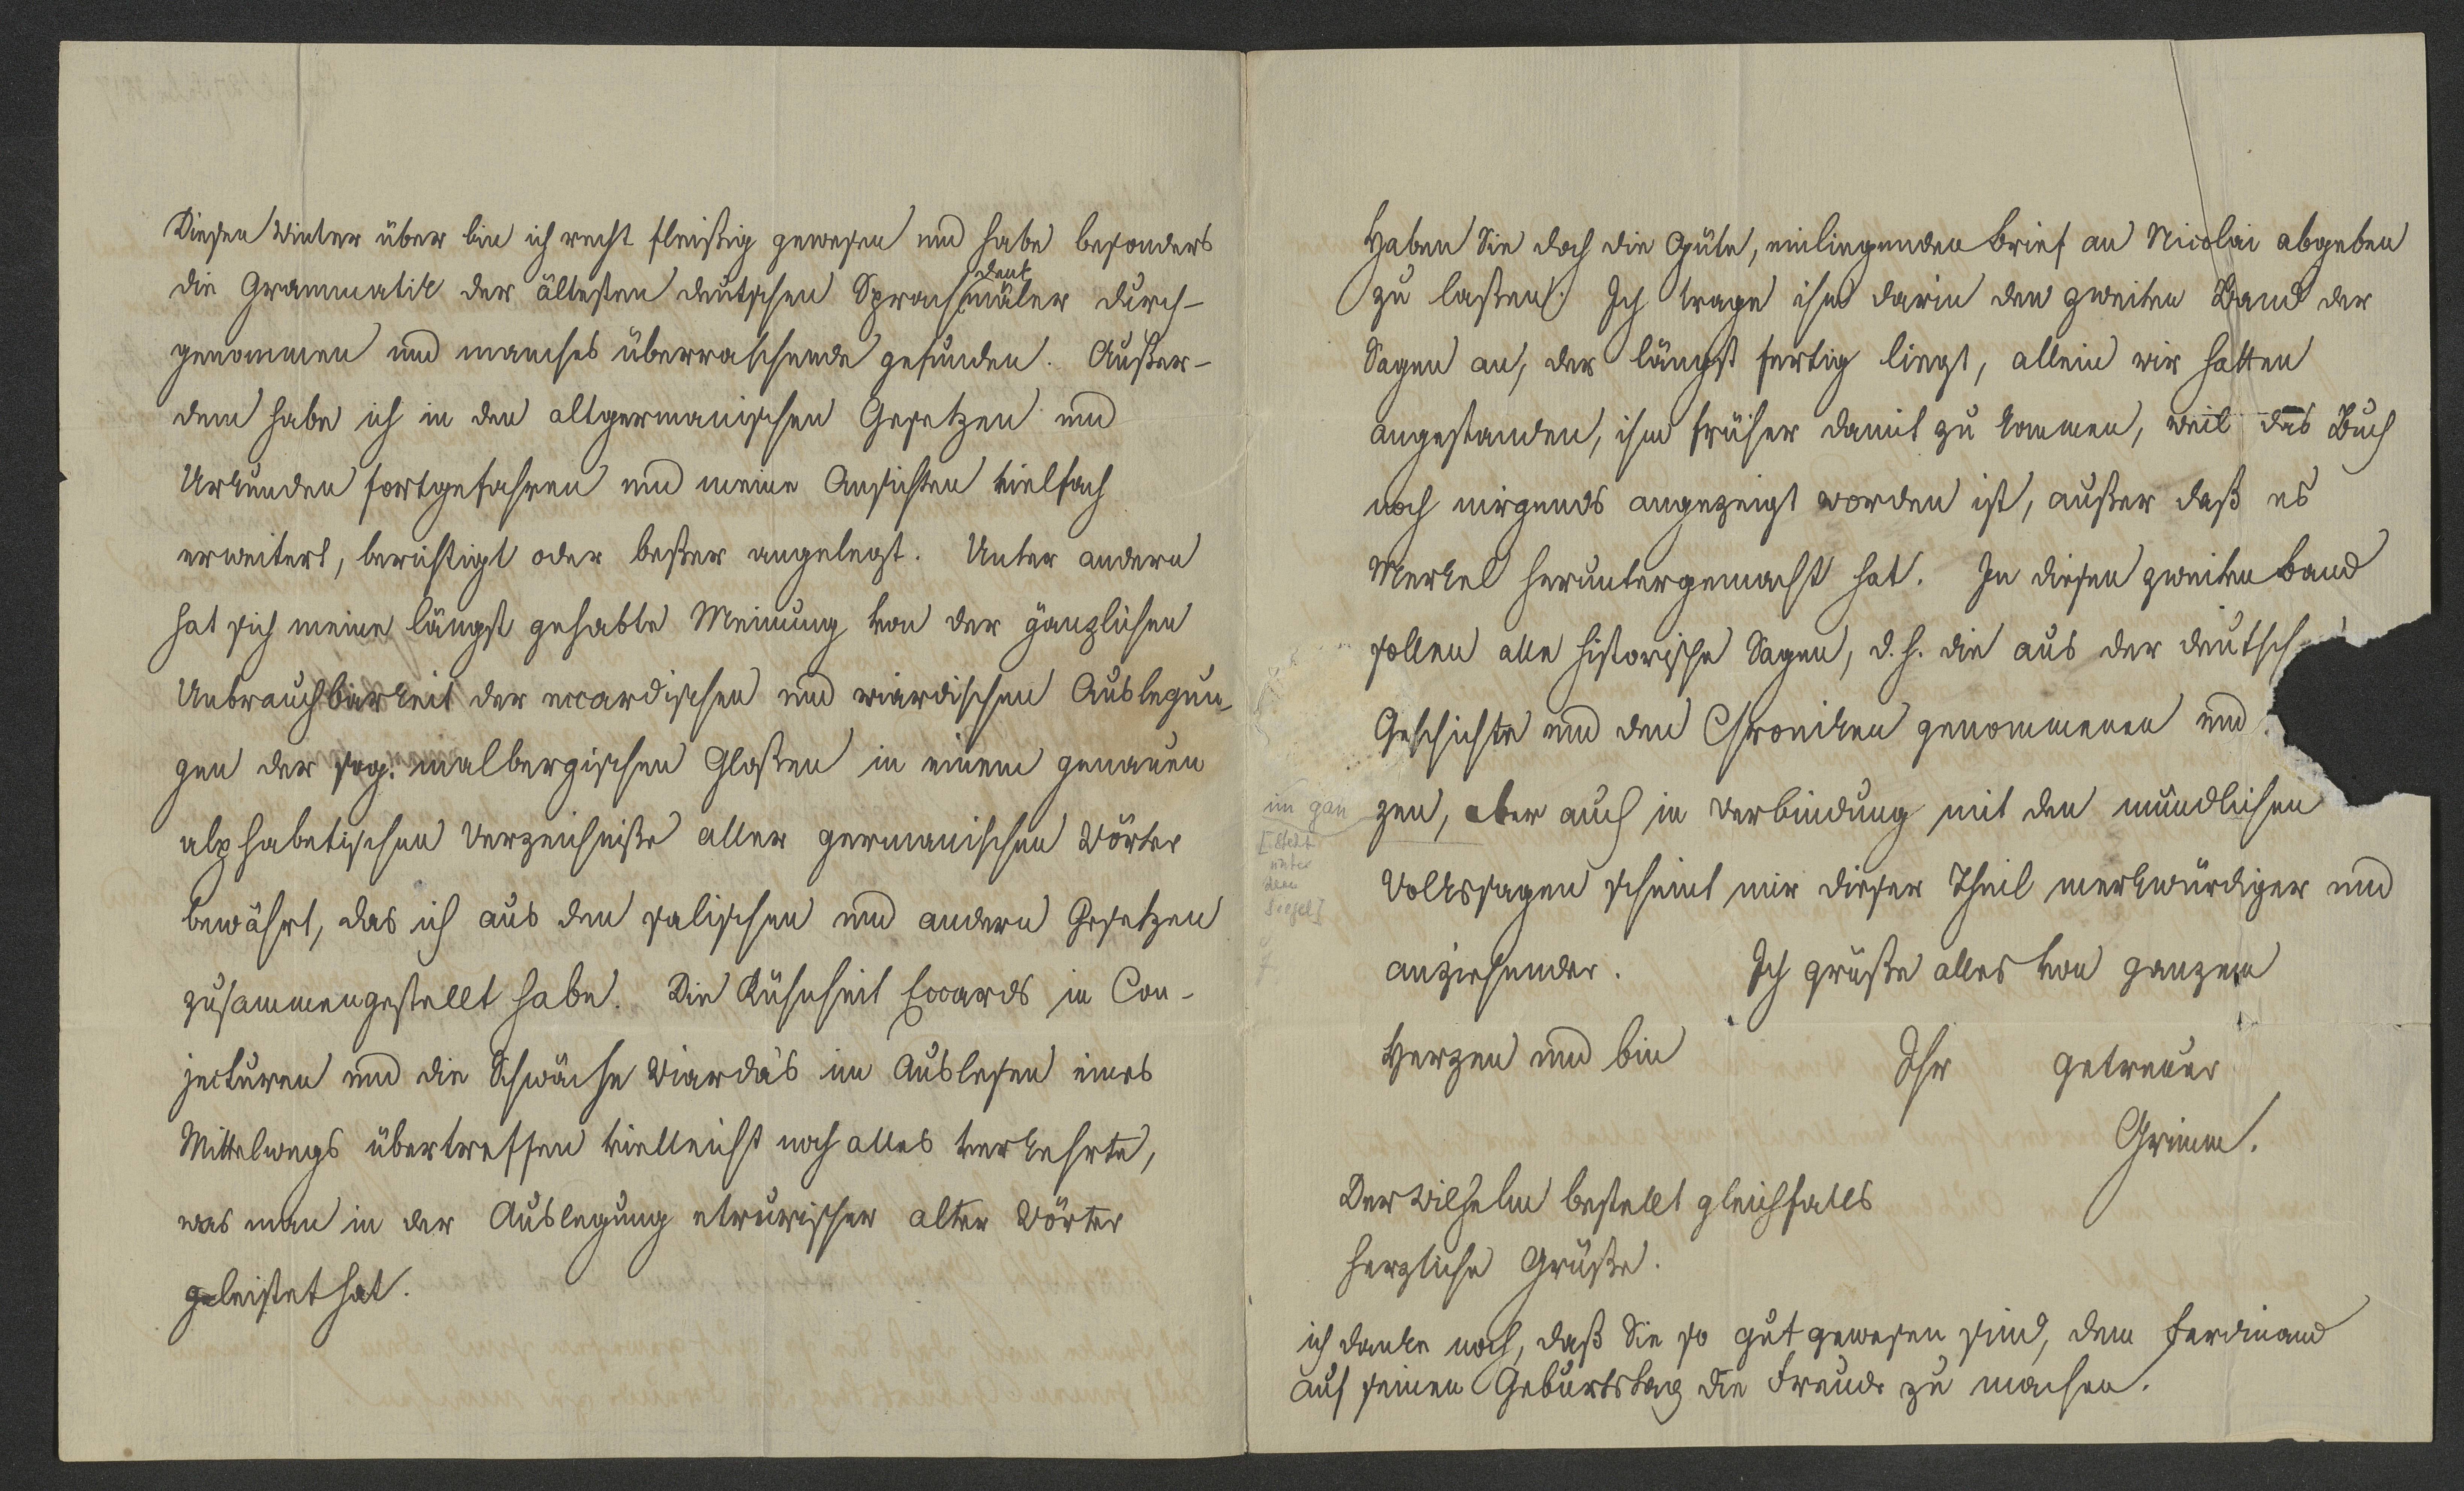 Diesen Winter über bin ich recht fleißig gewesen und habe besonders
die Grammatik der ältesten deutschen Sprachdenkmäler durch-
genommen und manches überraschende gefunden. Außer-
dem habe ich in den altgermanischen Gesetzen und
Urkunden fortgefahren und meine Ansichten vielfach
erweitert, berichtigt oder beßer angelegt. Unter andern
hat sich meine längst gehabte Meinung von der gänzlichen
Unbrauchbarkeit der eccardischen und wiardischen Auslegun-
gen der sog. malbergischen Gloßen in einem genauen
alphabetischen Verzeichniße aller germanischen Wörter
bewährt, das ich aus den salischen und andern Gesetzen
zusammengestellt habe. Die Kühnheit Eccards in Con-
jecturen und die Schwäche Wiarda's im Auslesen eines
Mittelwegs übertreffen vielleicht noch alles verkehrte,
was man in der Auslegung etrurischer alter Wörter
geleistet hat.
Haben Sie doch die Güte, einliegenden Brief an Nicolai abgeben
zu laßen. Ich trage ihm darin den zweiten Band der
Sagen an, der längst fertig liegt, allein wir hatten
angestanden, ihm früher damit zu kommen, weil das Buch
noch nirgends angezeigt worden ist, außer daß es
Merkel heruntergemacht hat. In diesen zweiten Band
sollen alle historische Sagen, d.h. die aus der deutsch
Geschichte und den Chroniken genommenen und
im gan
zen, aber auch in Verbindung mit den mündlichen
[steht
unter
dem
Siegel]
Volkssagen scheint mir dieser Theil merkwürdiger und
anziehender. Ich grüße alles von ganzem
Herzen und bin Ihr getreuer
Grimm.
Der Wilhelm bestellt gleichfalls
herzliche Grüße.
ich danke noch, daß Sie so gut gewesen sind, dem Ferdinand
auf seinen Geburtstag die Freude zu machen.